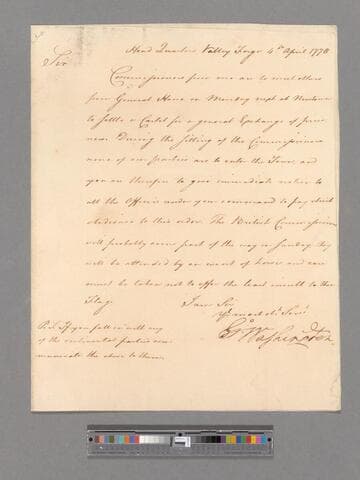 Head Quarters Valley Forge 4th April 1778
Sir
Commissioners from me are to meet others
from General Howe on Monday next at Newtown
to settle a Cartel for a general Exchange of Priso
ners. During the sitting of the Commissioners
none of our parties are to enter the Town and
you are therefore to give immediate notice to
all the Officers under your command to pay strict
obedience to this order. The British Commissioners
will probably come part of the way on Sunday they
will be attended by an escort of horse and care
must be taken not to offer the least insult to the
Flag.
I am Sir
Yr most obt Servt
Go Washington
P.S. If you fall in with any
of the continental parties com
municate the above to them.